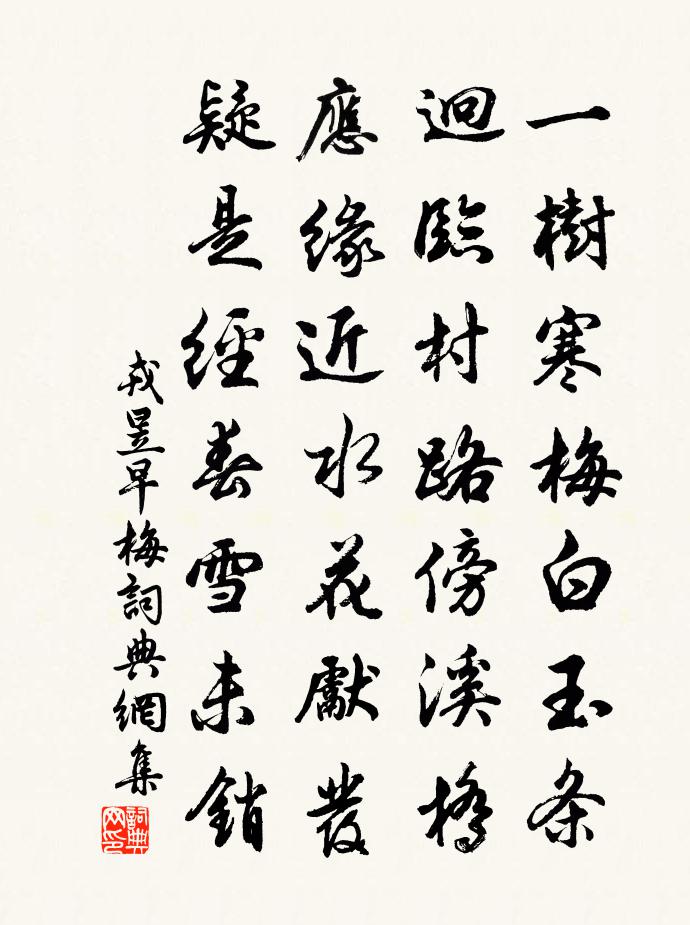 一樹寒梅白玉条
迴臨村路傍溪橋
應緣近水花獻發
疑是經春雪未銷
戎昱早梅詞典網集
詞典网印